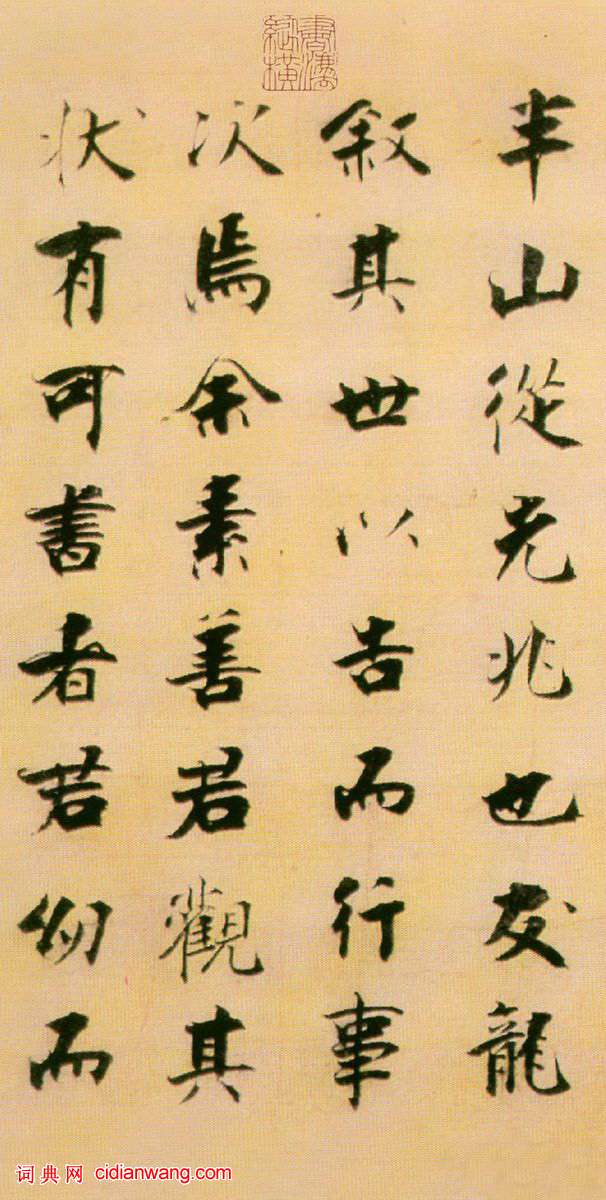 半山從先兆也友龍
叙其世以告而行事
次焉余素善若觀其
状有可書者若幼而
词典网 cidianwang.com